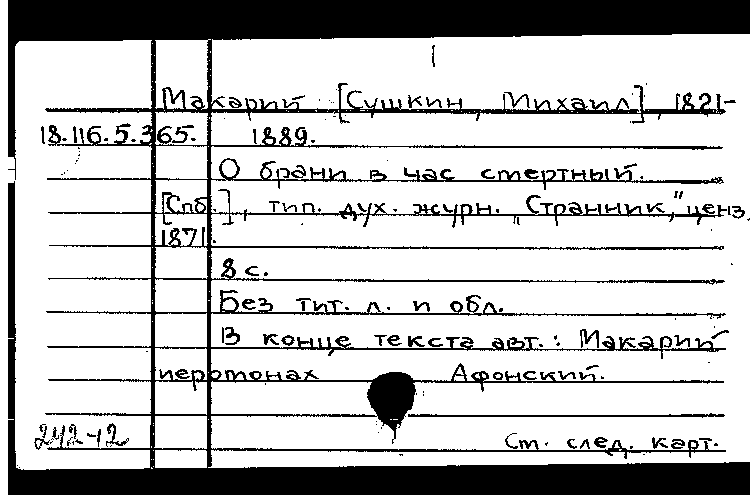 Макарий [Сушкин, Михаил], 1821-
18.116.5.365. 1889.
О брани в час смертный.
[Спб.], тип. дух. журн. „Странник," ценз.
1871.
8 с.
Без тит. л. и обл.
В конце текста авт.: Макарий
иеромонах Афонский.
242-12
См. след. карт.